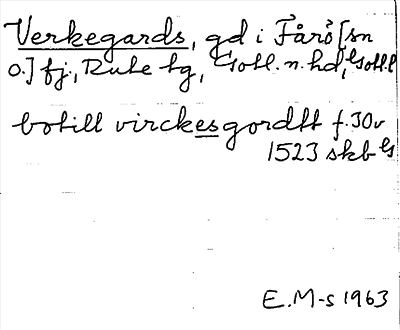 Verkegards, gd i Fårö [sn
o.] fj., Rute tg, Gotl. n. hd, Gotl. l
botill virckesgordtt f. 30v
1523 skb Gs
E. M-s 1963